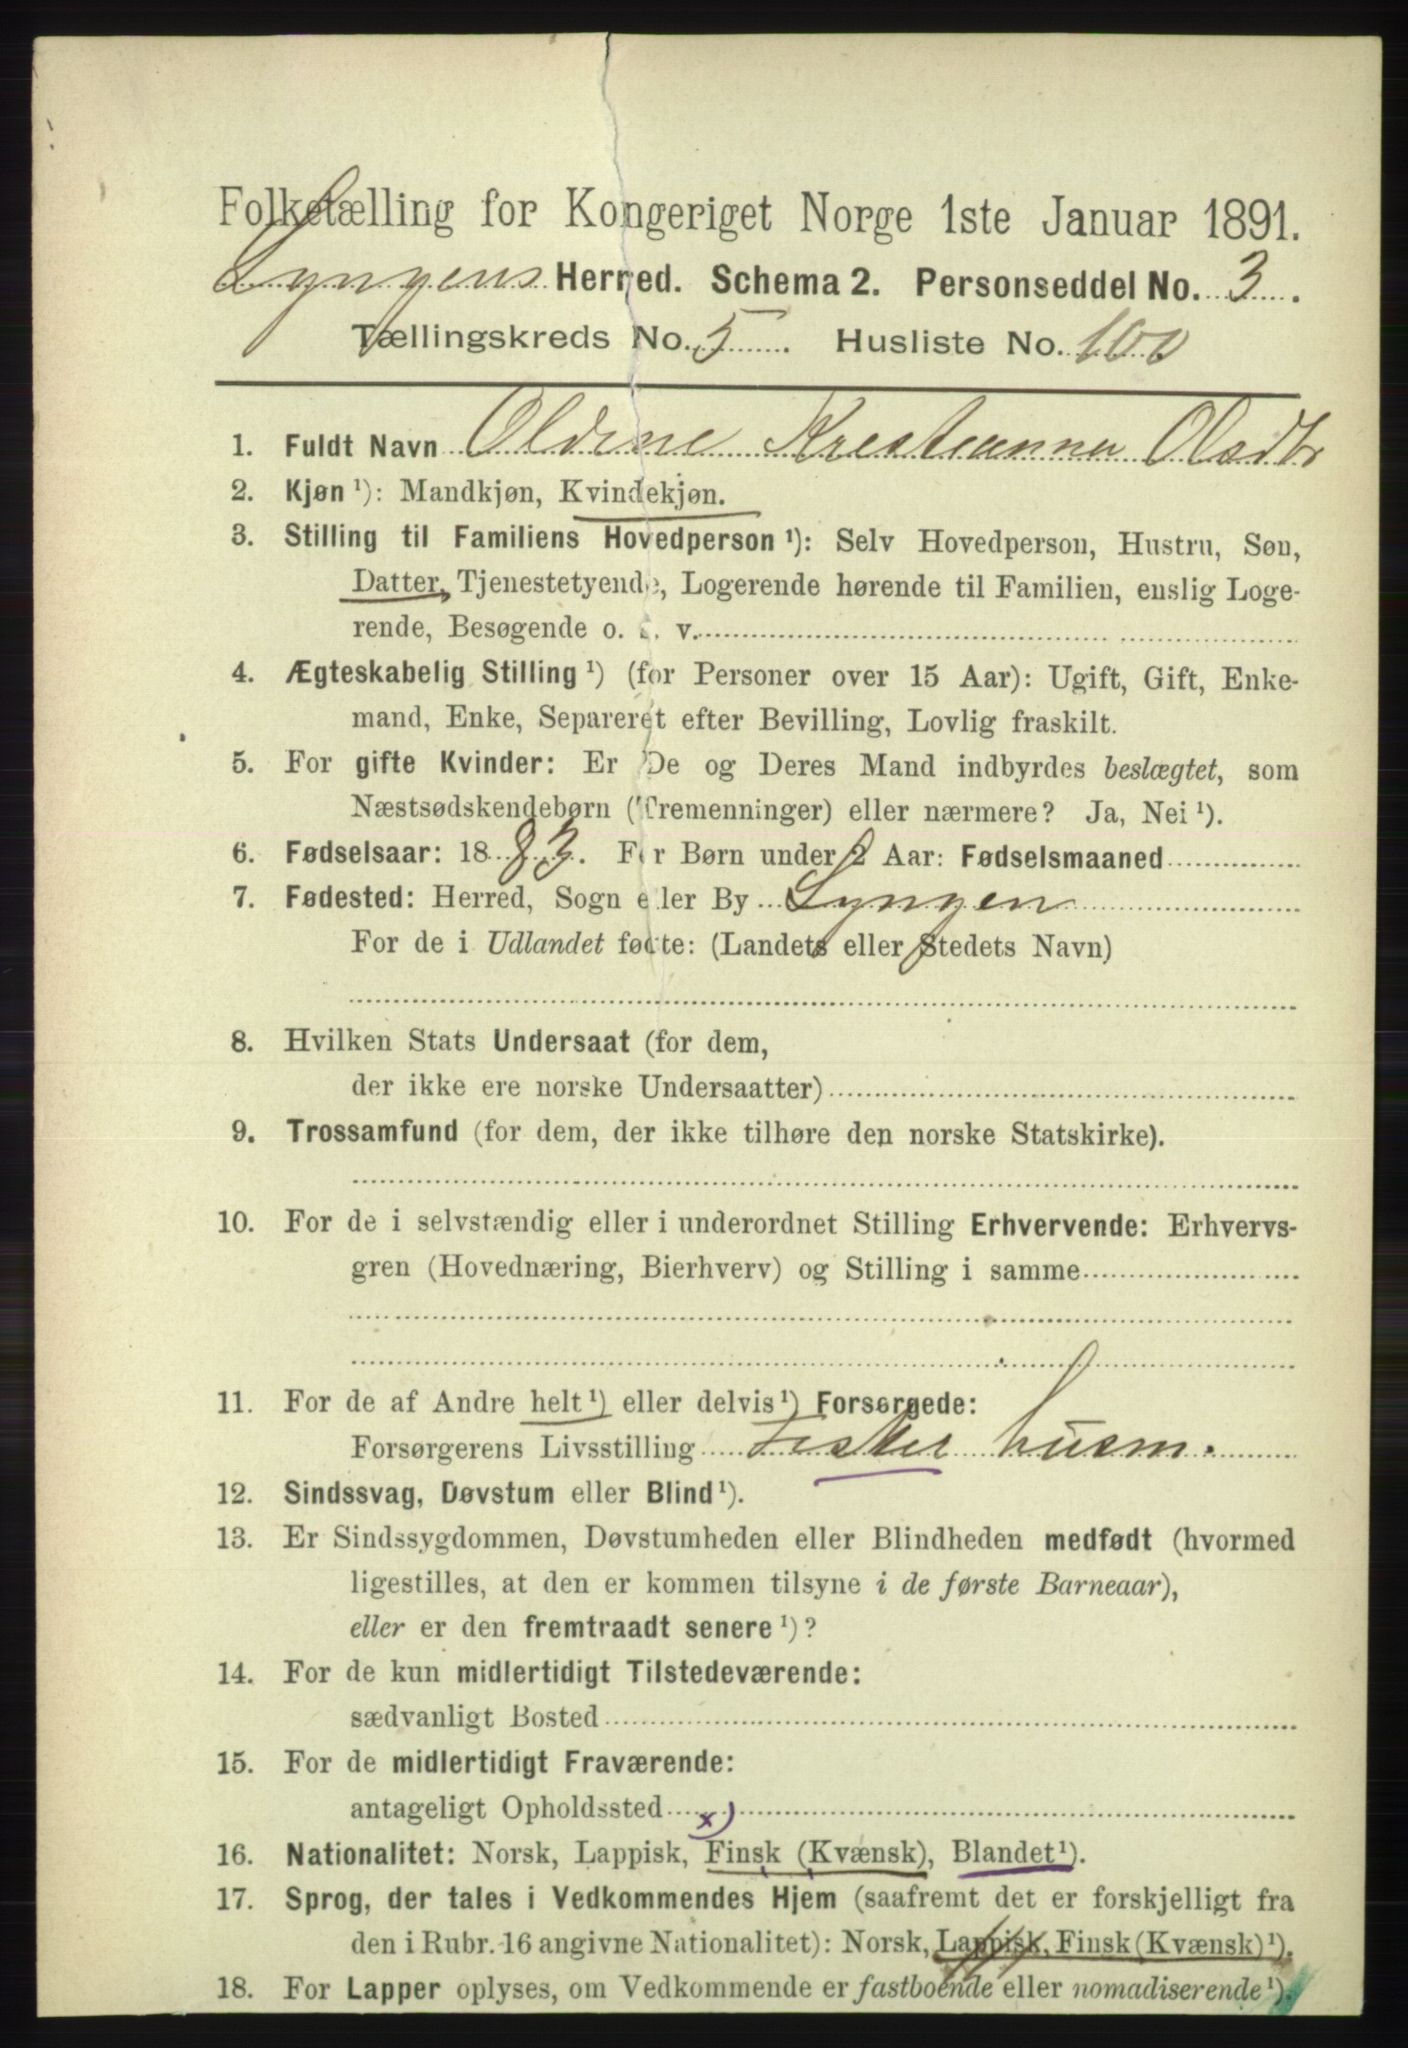 Folketælling for Kongeriget Norge 1ste Januar 1891.
Lyngens Herred. Schema 2. Personseddel No. 3.
Tællingskreds No. 5. Husliste No. 100
1. Fuldt Navn Oldine Krestianna Olsdtr
2. Kjøn ¹): Mandkjøn, Kvindekjøn.
3. Stilling til Familiens Hovedperson ¹): Selv Hovedperson, Hustru, Søn,
Datter, Tjenestetyende, Logerende hørende til Familien, enslig Loge-
rende, Besøgende o. s. v.
4. Ægteskabelig Stilling ¹) (for Personer over 15 Aar): Ugift, Gift, Enke-
mand, Enke, Separeret efter Bevilling, Lovlig fraskilt.
5. For gifte Kvinder: Er De og Deres Mand indbyrdes beslægtet, som
Næstsødskendebørn (Tremenninger) eller nærmere? Ja, Nei ¹).
6. Fødselsaar: 1883. For Børn under 2 Aar: Fødselsmaaned
7. Fødested: Herred, Sogn eller By Lyngen
For de i Udlandet fødte: (Landets eller Stedets Navn)
8. Hvilken Stats Undersaat (for dem,
der ikke ere norske Undersaatter)
9. Trossamfund (for dem, der ikke tilhøre den norske Statskirke).
10. For de i selvstændig eller i underordnet Stilling Erhvervende: Erhvervs-
gren (Hovednæring, Bierhverv) og Stilling i samme
11. For de af Andre helt ¹) eller delvis ¹) Forsørgede:
Forsørgerens Livsstilling Fisker husm.
12. Sindssvag, Døvstum eller Blind ¹).
13. Er Sindssygdommen, Døvstumheden eller Blindheden medfødt (hvormed
ligestilles, at den er kommen tilsyne i de første Barneaar),
eller er den fremtraadt senere ¹)?
14. For de kun midlertidigt Tilstedeværende:
sædvanligt Bosted
15. For de midlertidigt Fraværende:
antageligt Opholdssted
x)
16. Nationalitet: Norsk, Lappisk, Finsk (Kvænsk), Blandet ¹).
17. Sprog, der tales i Vedkommendes Hjem (saafremt det er forskjelligt fra
den i Rubr. 16 angivne Nationalitet): Norsk, Lappisk, Finsk (Kvænsk) ¹).
18. For Lapper oplyses, om Vedkommende er fastboende eller nomadiserende ¹).